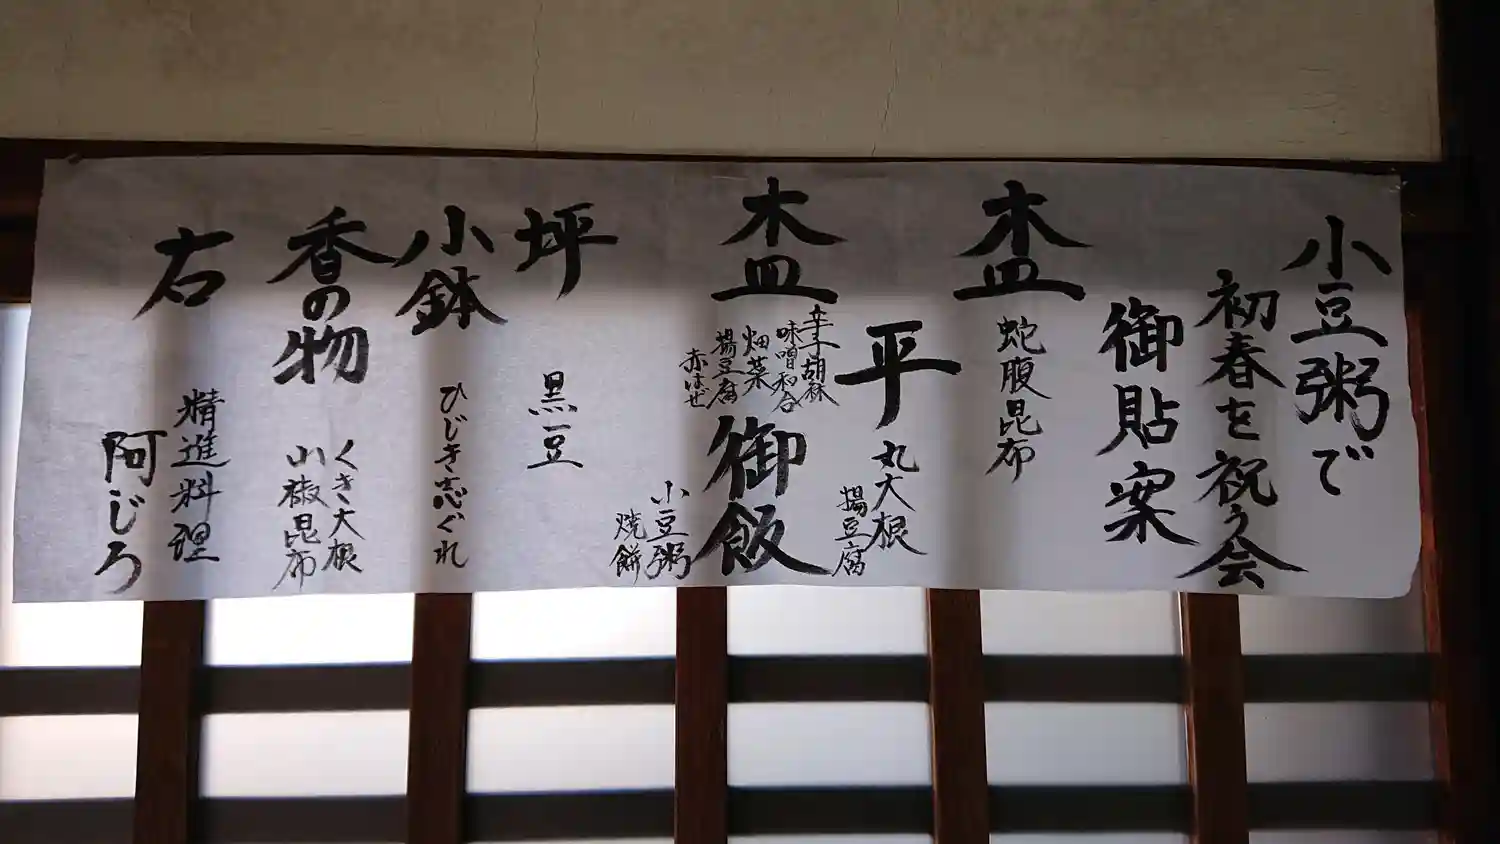 小豆粥で
初春を祝う会
御貼案
木皿
蛇腹昆布
平
丸大根
揚豆腐
木皿
辛子胡麻
味噌和合
畑菜
揚豆腐
赤はぜ
御飯
小豆粥
焼餅
坪
黒豆
小鉢
ひじき志ぐれ
香の物
くき大根
山椒昆布
右
精進料理
阿じろ